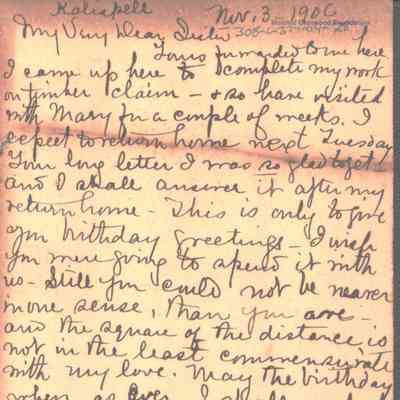 Kalispell Nov, 3, 1906
My Very Dear Sister
Yours forwarded to me here
I came up here to complete my work
on timber claim - & so have visited
with Mary for a couple of weeks. I
expect to return home next Tuesday
Your long letter I was so glad to get -
and I shall answer it after my
return home - This is only to give
you birthday greetings - I wish
you were going to spend it with
us - Still you could not be nearer
in one sense, than you are -
and the square of the distance is
not in the least commensurate
with my love. May the birthday
when as ever I shall